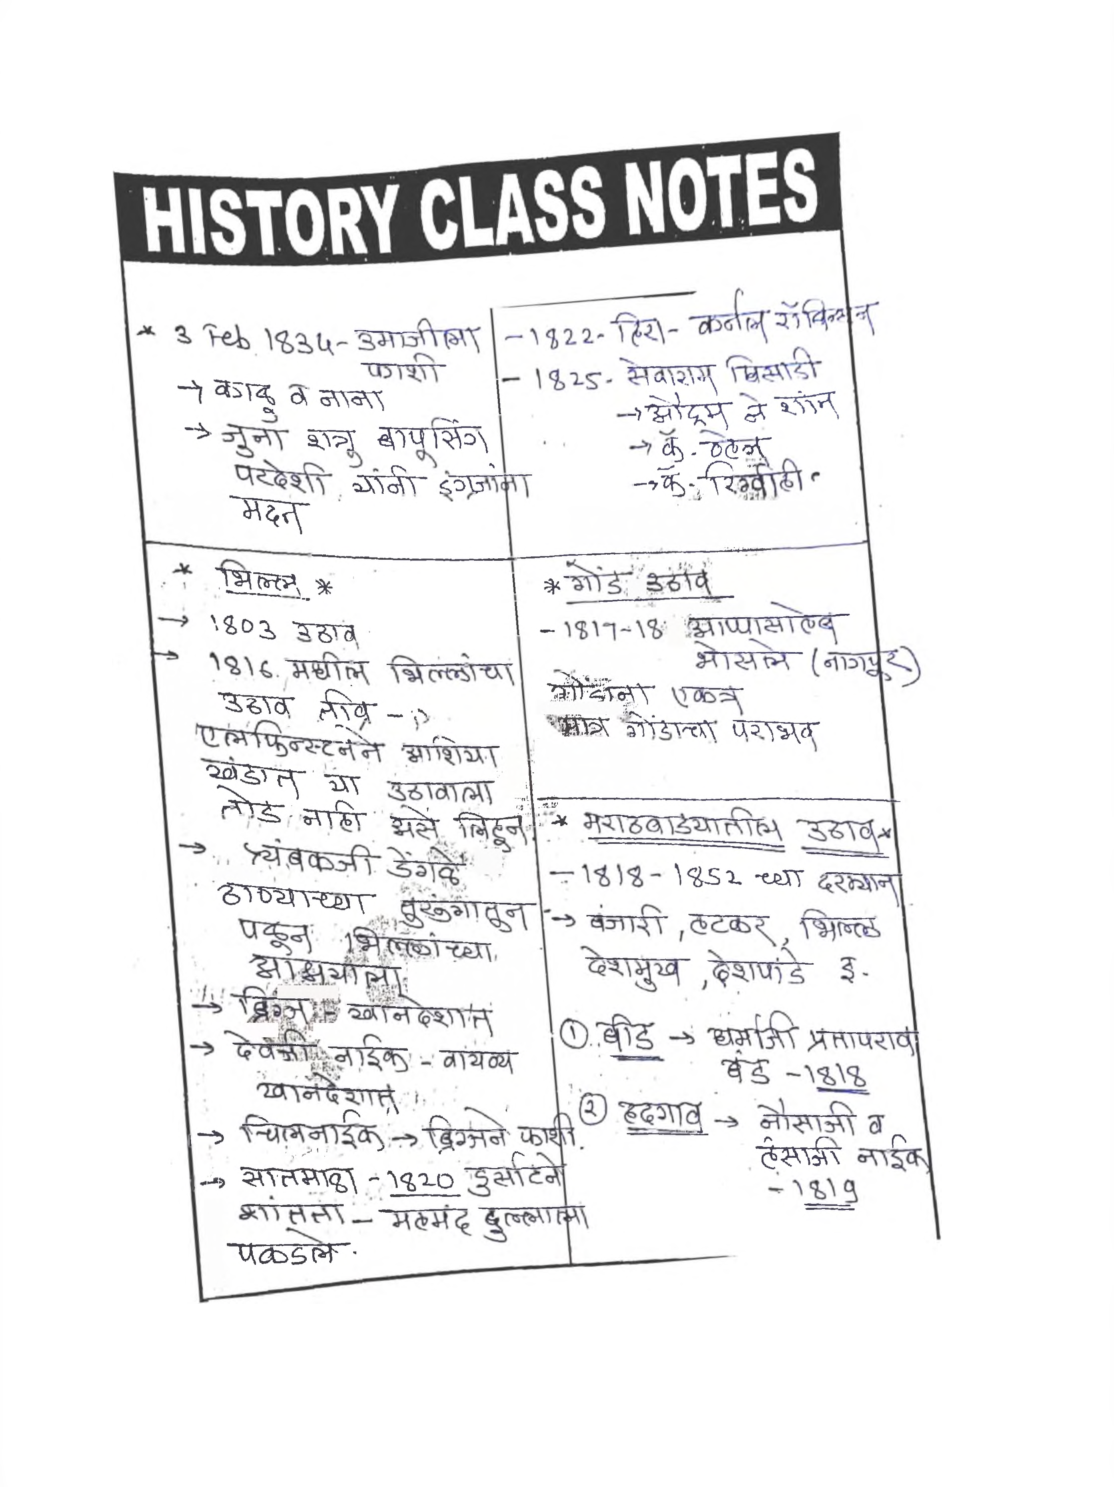 HISTORY CLASS NOTES
* 3 Feb. 1834 - उमाजीला
फाशी
→ काळु व नाना
→ जुना शत्रु बापूसिंग
परदेशी यांनी इंग्रजांना
मदत
* भिल्ल *
→ 1803 उठाव
→ 1816 मधील भिल्लांचा
उठाव तीव्र -
एलफिन्स्टनने आशिया
खंडात या उठावाला
तोड नाही असे लिहून
→ त्र्यंबकजी डेंगळे
ठाण्याच्या तुरूंगातून
पळून भिल्लांच्या
आश्रयाला
→ ब्रिग्ज - खानदेशात
→ देवजी नाईक - वायव्य
खानदेशात
→ चिलनाईक → ब्रिग्जने फाशी.
→ सातमाळा - 1820
शांतता - महमंद दुल्लाला
पकडले.
- 1822 - हिरा - कर्नल रॉबिन्सन
- 1825 - सेवाराम घिसाडी
→ औट्रम ने शांत
→ कॅ.
→ कॅ.
* गोंड उठाव
- 1817-18 आप्पासाहेब
भोसले (नागपूर)
गोंडांना एकत्र
मात्र गोंडाचा पराभव
* मराठवाड्यातील उठाव *
- 1818 - 1852 च्या दरम्यान
→ वंजारी, हटकर, भिल्ल
देशमुख, देशपांडे इ.
① बीड → धर्माजी प्रतापराव
बंड - 1818
② हदगाव → नौसाजी व
हंसाजी नाईक
- 1819